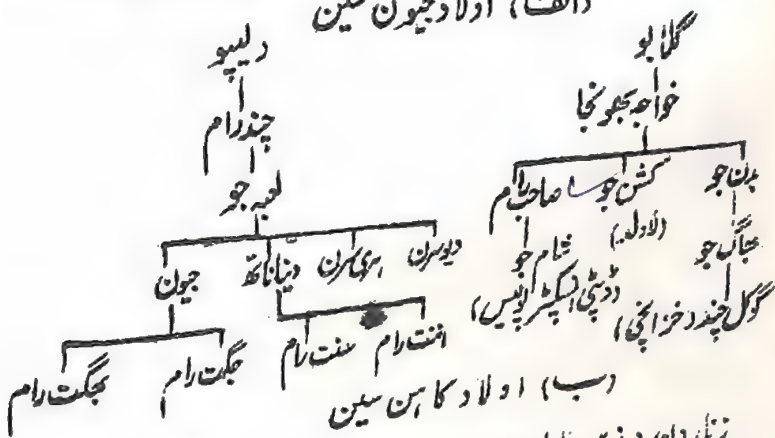 (الف) اولاد جیون سین
گلابو
خواجہ بھونجا
بدن جو کشن جو صاحب رام
(لاولد)
بھاگ جو شام جو
گوکل چند (خزانچی) (ڈپٹی انسپکٹر پولیس)
دلیپو
چند رام
لعبہ جو
دیوسرن ہری سرن دینا ناتھ جیون
اننت رام سنت رام جگت رام بھگت رام
(ب) اولاد کاہن سین